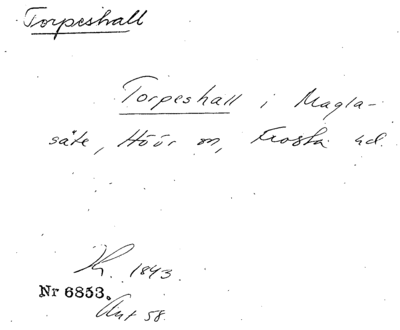 Torpeshall
Torpeshall i Magla-
säte, Höör sn, Frosta hd.
K. 1843.
Nr 6853.
Ant 58.